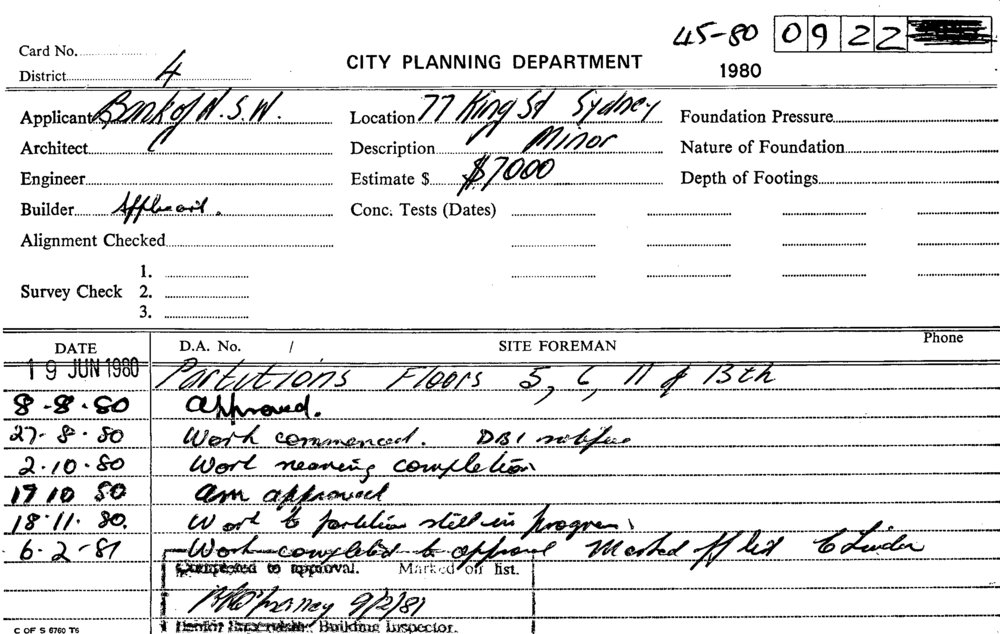 45-80 0922
Card No.
District 4
CITY PLANNING DEPARTMENT
1980
Applicant Bank of N.S.W. Location 77 King St Sydney Foundation Pressure
Architect Description Minor Nature of Foundation
Engineer Estimate $ $7000 Depth of Footings
Builder Applicant. Conc. Tests (Dates)
Alignment Checked
1.
Survey Check 2.
3.
DATE D.A. No. / SITE FOREMAN Phone
19 JUN 1980 Partitions Floors 5, 6, 11 & 13th
8-8-80 Approved.
27-8-80 Work commenced. DBI notified
2.10.80 Work nearing completion
17 10 80 am approved
18.11.80. Work to partition still in progress
6-2-81 Work completed to approval Marked off list
Completed to approval. Marked off list.
9/2/81
Building Inspector.
C OF S 6760 T6